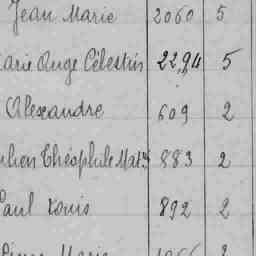 Jean Marie 2060 5
arie Ange Célestin 2294 5
Alexandre 609 2
ulien Théophile Mat 883 2
Paul Louis 892 2
Marie